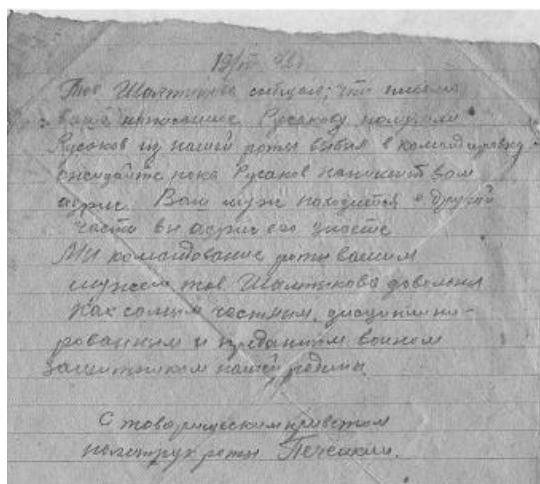 19/IV 42г
Тов Шалтыкова сообщаю, что письмо
ваше написанное Русакову получили
Русаков из нашей роты выбыл в командировку
ожидайте пока Русаков напишет вам
адрис. Ваш муж находится в другой
части вы адрис его знаете
Мы командование роты вашим
мужем тов. Шалтыкова довольны
как самым честным, дисциплини-
рованным и преданным воином
защитником нашей родины
С товарищеским приветом
политрук роты